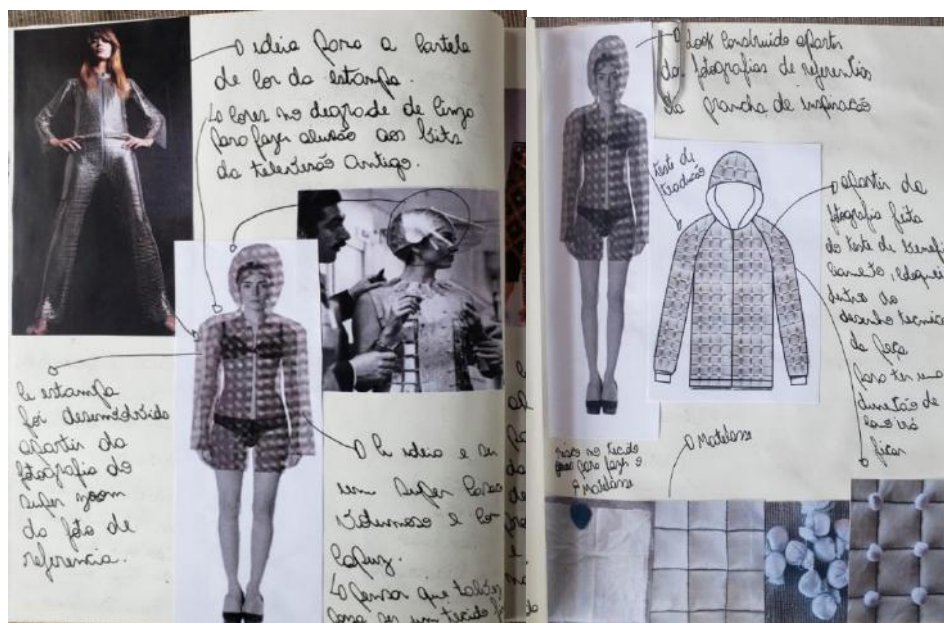 ideia para a cartela
de cor da estampa.
cores no degrade de cinza
para fazer alusão aos bits
da televisão antiga.
A estampa
foi desenvolvida
apartir da
fotografia do
super zoom
da foto de
referencia.
A ideia e ser
um super casaco
volumoso e com
capuz.
pensar que talvés
possa ser um tecido
Look construido apartir
das fotografias de referencias
da prancha de inspiração
teste de
tradução
apartir da
fotografia feita
do teste de benefi
ciamento, coloquei
dentro do
desenho tecnico
da peça
para ter uma
dimensão de
como irá
ficar
risco no tecido
para fazer o
Matelasse
Matelasse